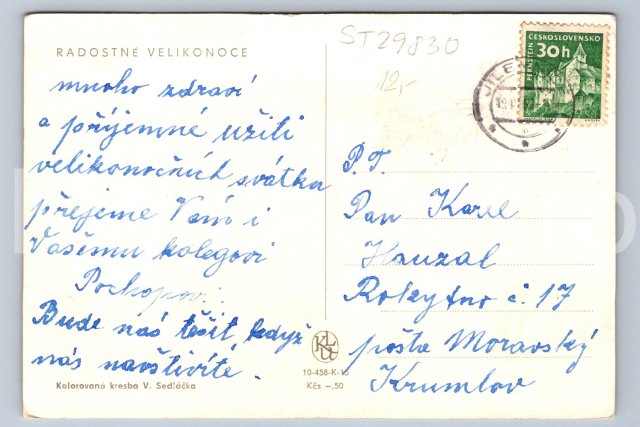 RADOSTNÉ VELIKONOCE
mnoho zdraví
a příjemné užití
velikonočních svátku
přejeme Vám i
Vašemu kolegovi
Pochopovi.
Bude nás těšit, když
nás navštívíte.
Kolorovaná kresba V. Sedláčka
ST29830
12,-
ČESKOSLOVENSKO
PERNŠTEJN
30h
P. T.
Pan Karel
Hauzal
Rokytno č. 17
pošta Moravský
Krumlov
10-458-K-15
Kčs -,50